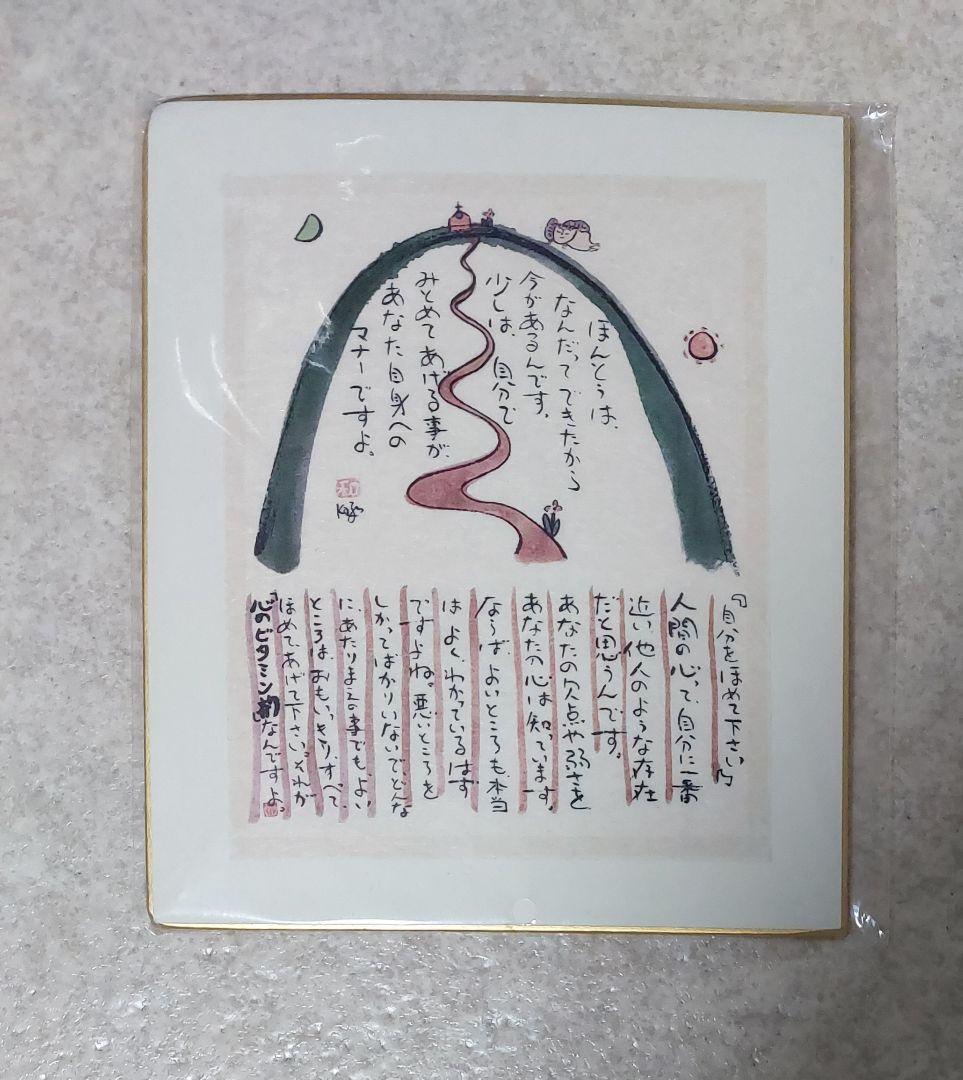 ほんとうは、
なんだってできたから
今があるんです。
少しは、自分で
みとめてあげる事が、
あなた自身への
マナーですよ。
和
『自分をほめて下さい』
人間の心って、自分に一番
近い、他人のような存在
だと思うんです。
あなたの欠点や弱さを
あなたの心は知っています。
ならば、よいところも、本当
はよくわかっているはず
ですよね。悪いところを
しかってばかりいないでどんな
にあたりまえの事でも、よい
ところは、おもいっきり、すべて、
ほめてあげて下さい。それが
「心のビタミン剤」なんですよ。